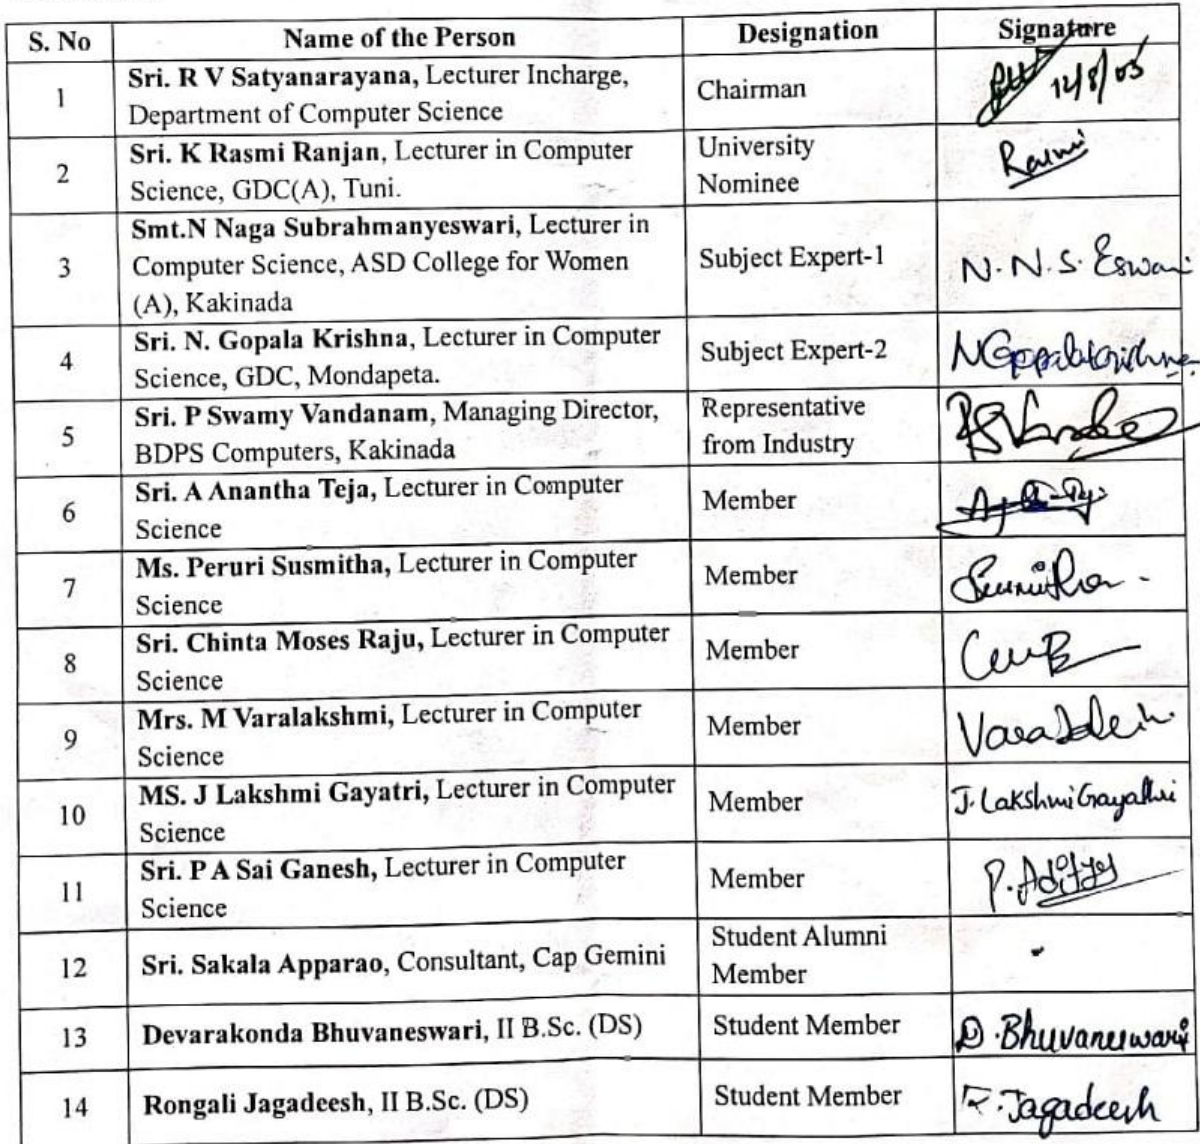 S. No Name of the Person Designation Signature
1 Sri. R V Satyanarayana, Lecturer Incharge,
Department of Computer Science Chairman 12/8/05
2 Sri. K Rasmi Ranjan, Lecturer in Computer
Science, GDC(A), Tuni. University
Nominee Rasmi
3 Smt.N Naga Subrahmanyeswari, Lecturer in
Computer Science, ASD College for Women
(A), Kakinada Subject Expert-1 N. N. S. Eswari
4 Sri. N. Gopala Krishna, Lecturer in Computer
Science, GDC, Mondapeta. Subject Expert-2 NGopalakrishna
5 Sri. P Swamy Vandanam, Managing Director,
BDPS Computers, Kakinada Representative
from Industry
6 Sri. A Anantha Teja, Lecturer in Computer
Science Member
7 Ms. Peruri Susmitha, Lecturer in Computer
Science Member
8 Sri. Chinta Moses Raju, Lecturer in Computer
Science Member
9 Mrs. M Varalakshmi, Lecturer in Computer
Science Member
10 MS. J Lakshmi Gayatri, Lecturer in Computer
Science Member J. Lakshmi Gayathri
11 Sri. P A Sai Ganesh, Lecturer in Computer
Science Member P. Aditya
12 Sri. Sakala Apparao, Consultant, Cap Gemini Student Alumni
Member -
13 Devarakonda Bhuvaneswari, II B.Sc. (DS) Student Member D. Bhuvaneswari
14 Rongali Jagadeesh, II B.Sc. (DS) Student Member R. Jagadeesh